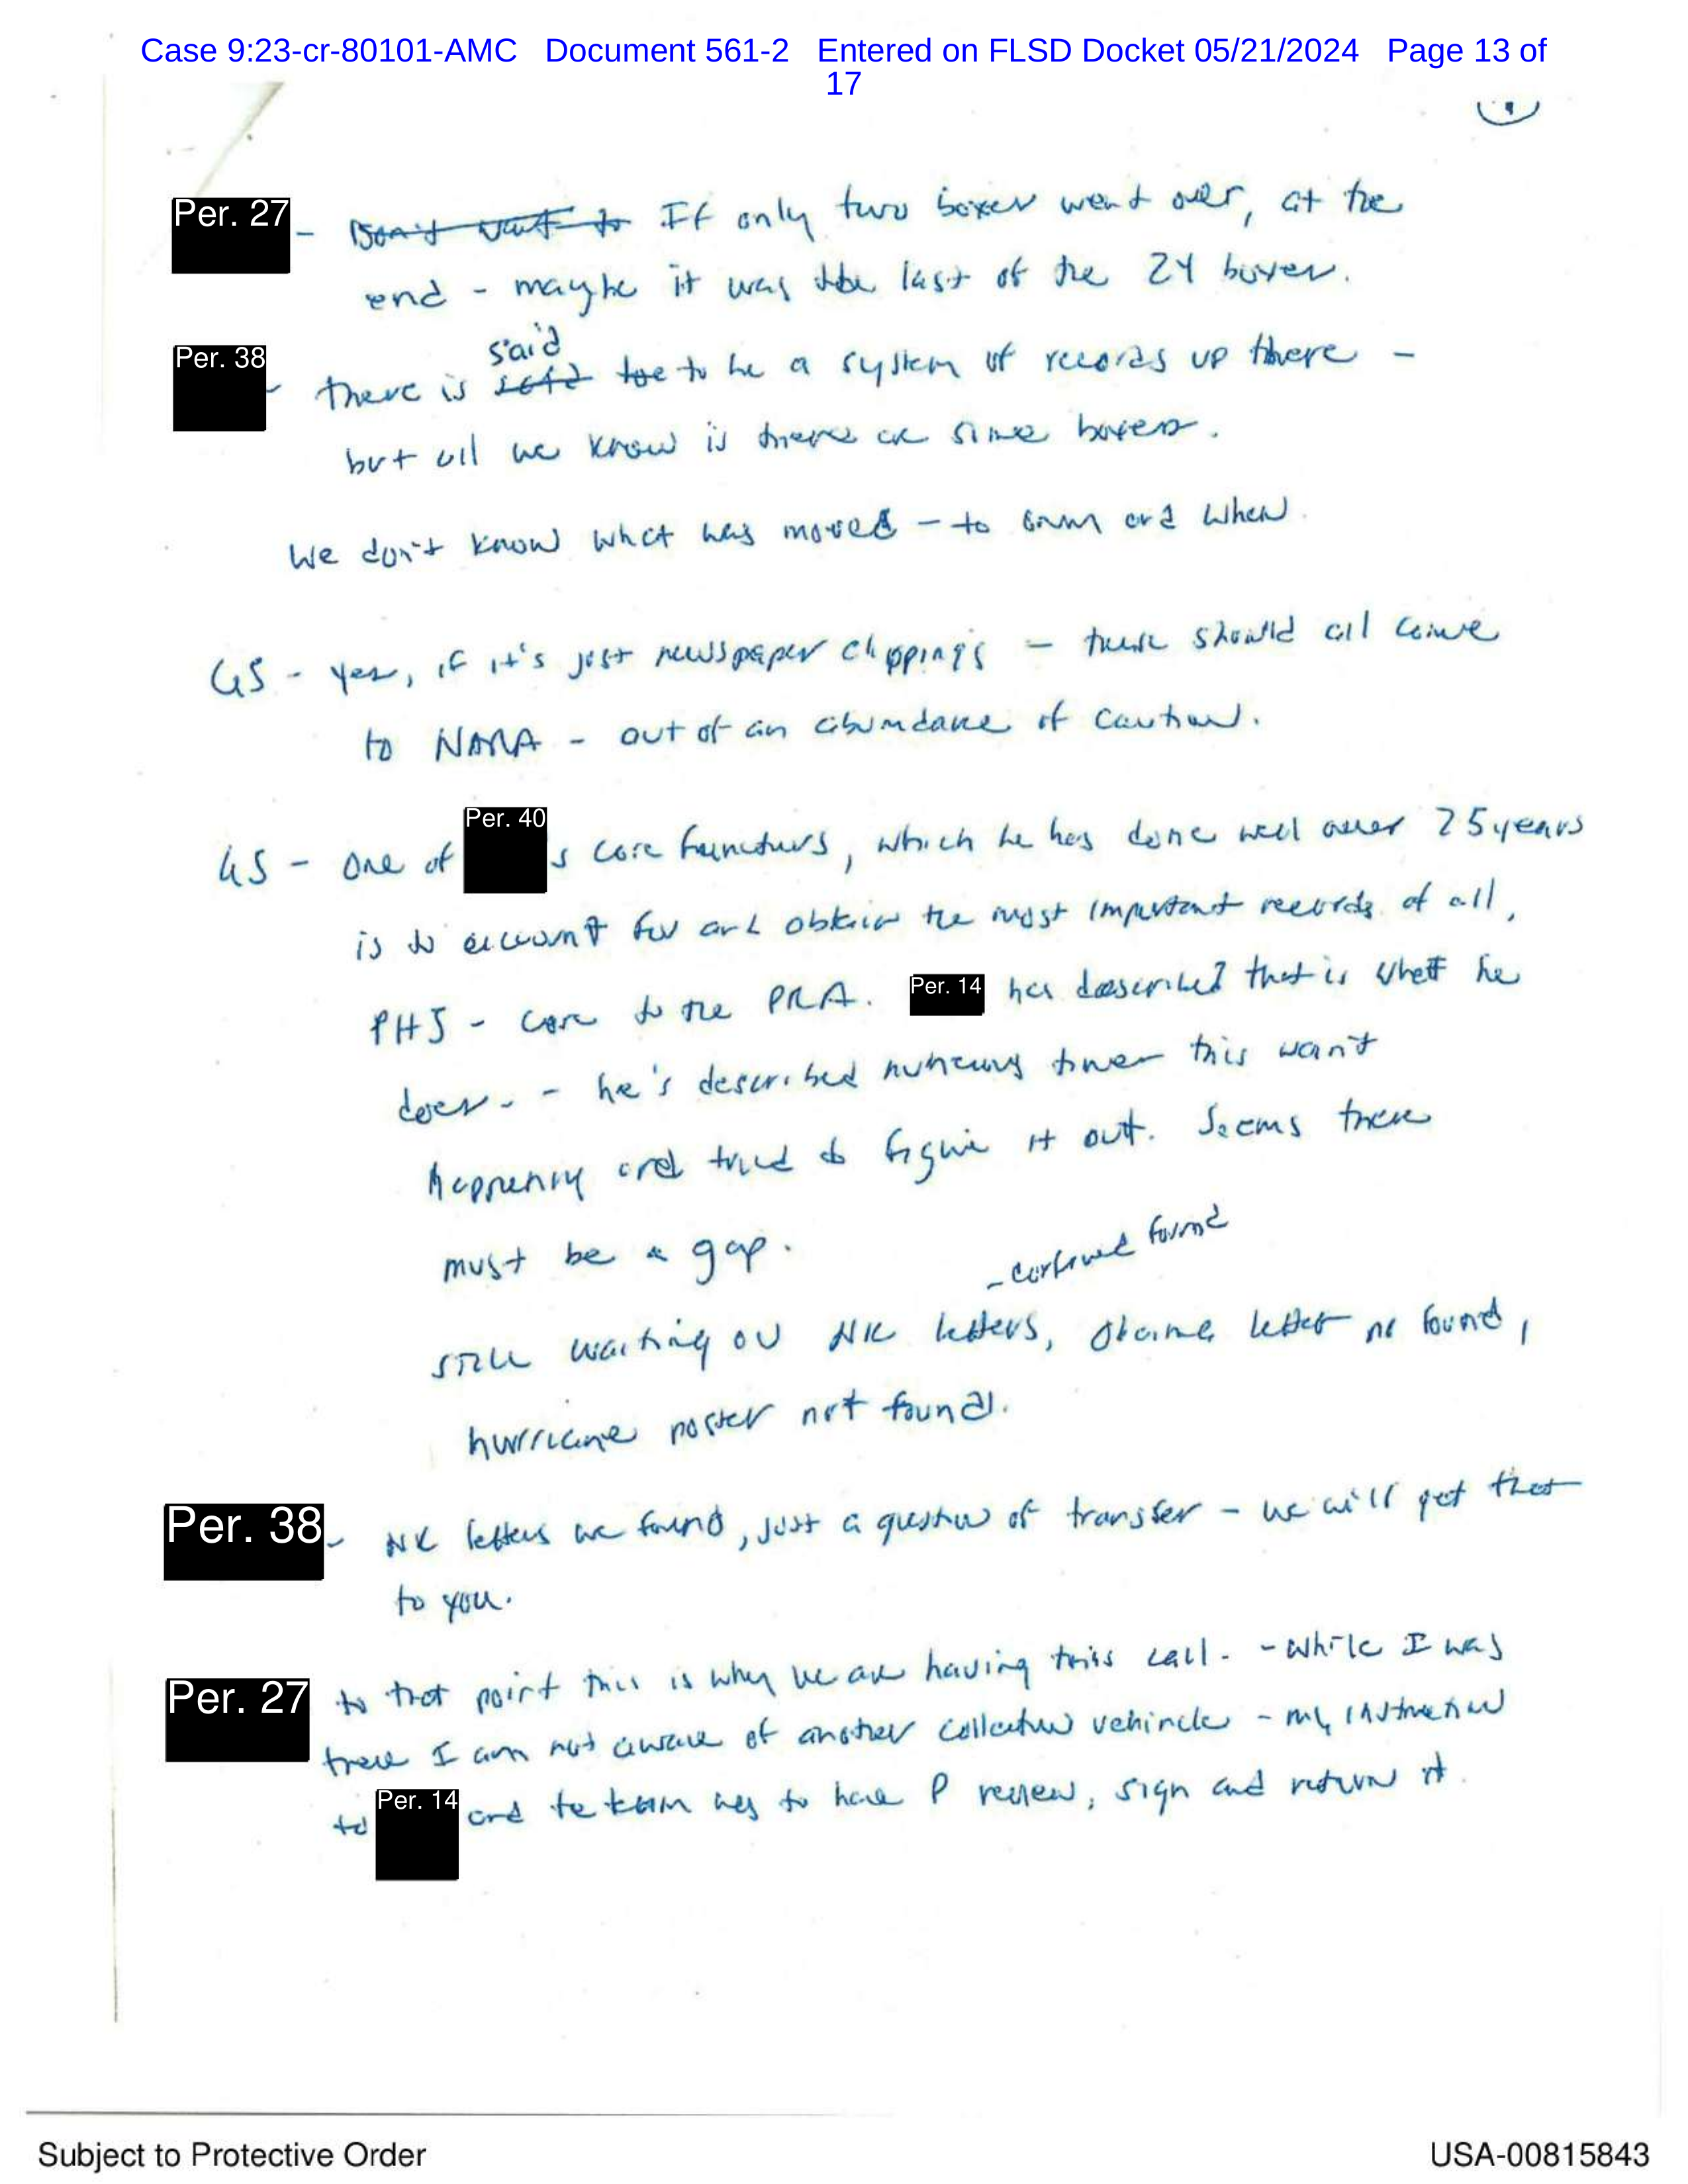 Case 9:23-cr-80101-AMC Document 561-2 Entered on FLSD Docket 05/21/2024 Page 13 of
17
Per. 27 - Don't want to If only two boxes went over, at the
end - maybe it was the last of the 24 boxes.
said
Per. 38 - there is to be a system of records up there -
but all we know is there are some boxes.
We don't know what was moved - to and when
GS - yes, if it's just newspaper clippings - these should all come
to NARA - out of an abundance of caution.
GS - one of Per. 40 s core functions, which he has done well over 25 years
is to account for and obtain the most important records of all,
PHJ - core to the PRA. Per. 14 has described that is what he
does. - he's described numerous times this wasn't
happening and tried to figure it out. Seems there
must be a gap.
- confirmed found
still waiting on NK letters, Obama letter not found,
hurricane poster not found.
Per. 38 - NK letters are found, just a question of transfer - we will get that
to you.
Per. 27 to that point this is why we are having this call. - while I was
there I am not aware of another collection vehicle - my instruction
to Per. 14 and the team was to have P review, sign and return it.
Subject to Protective Order
USA-00815843